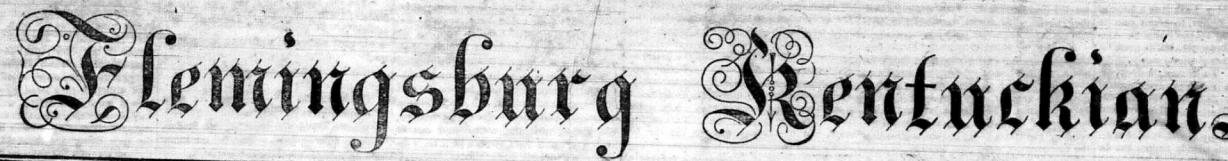 Flemingsburg Kentuckian.